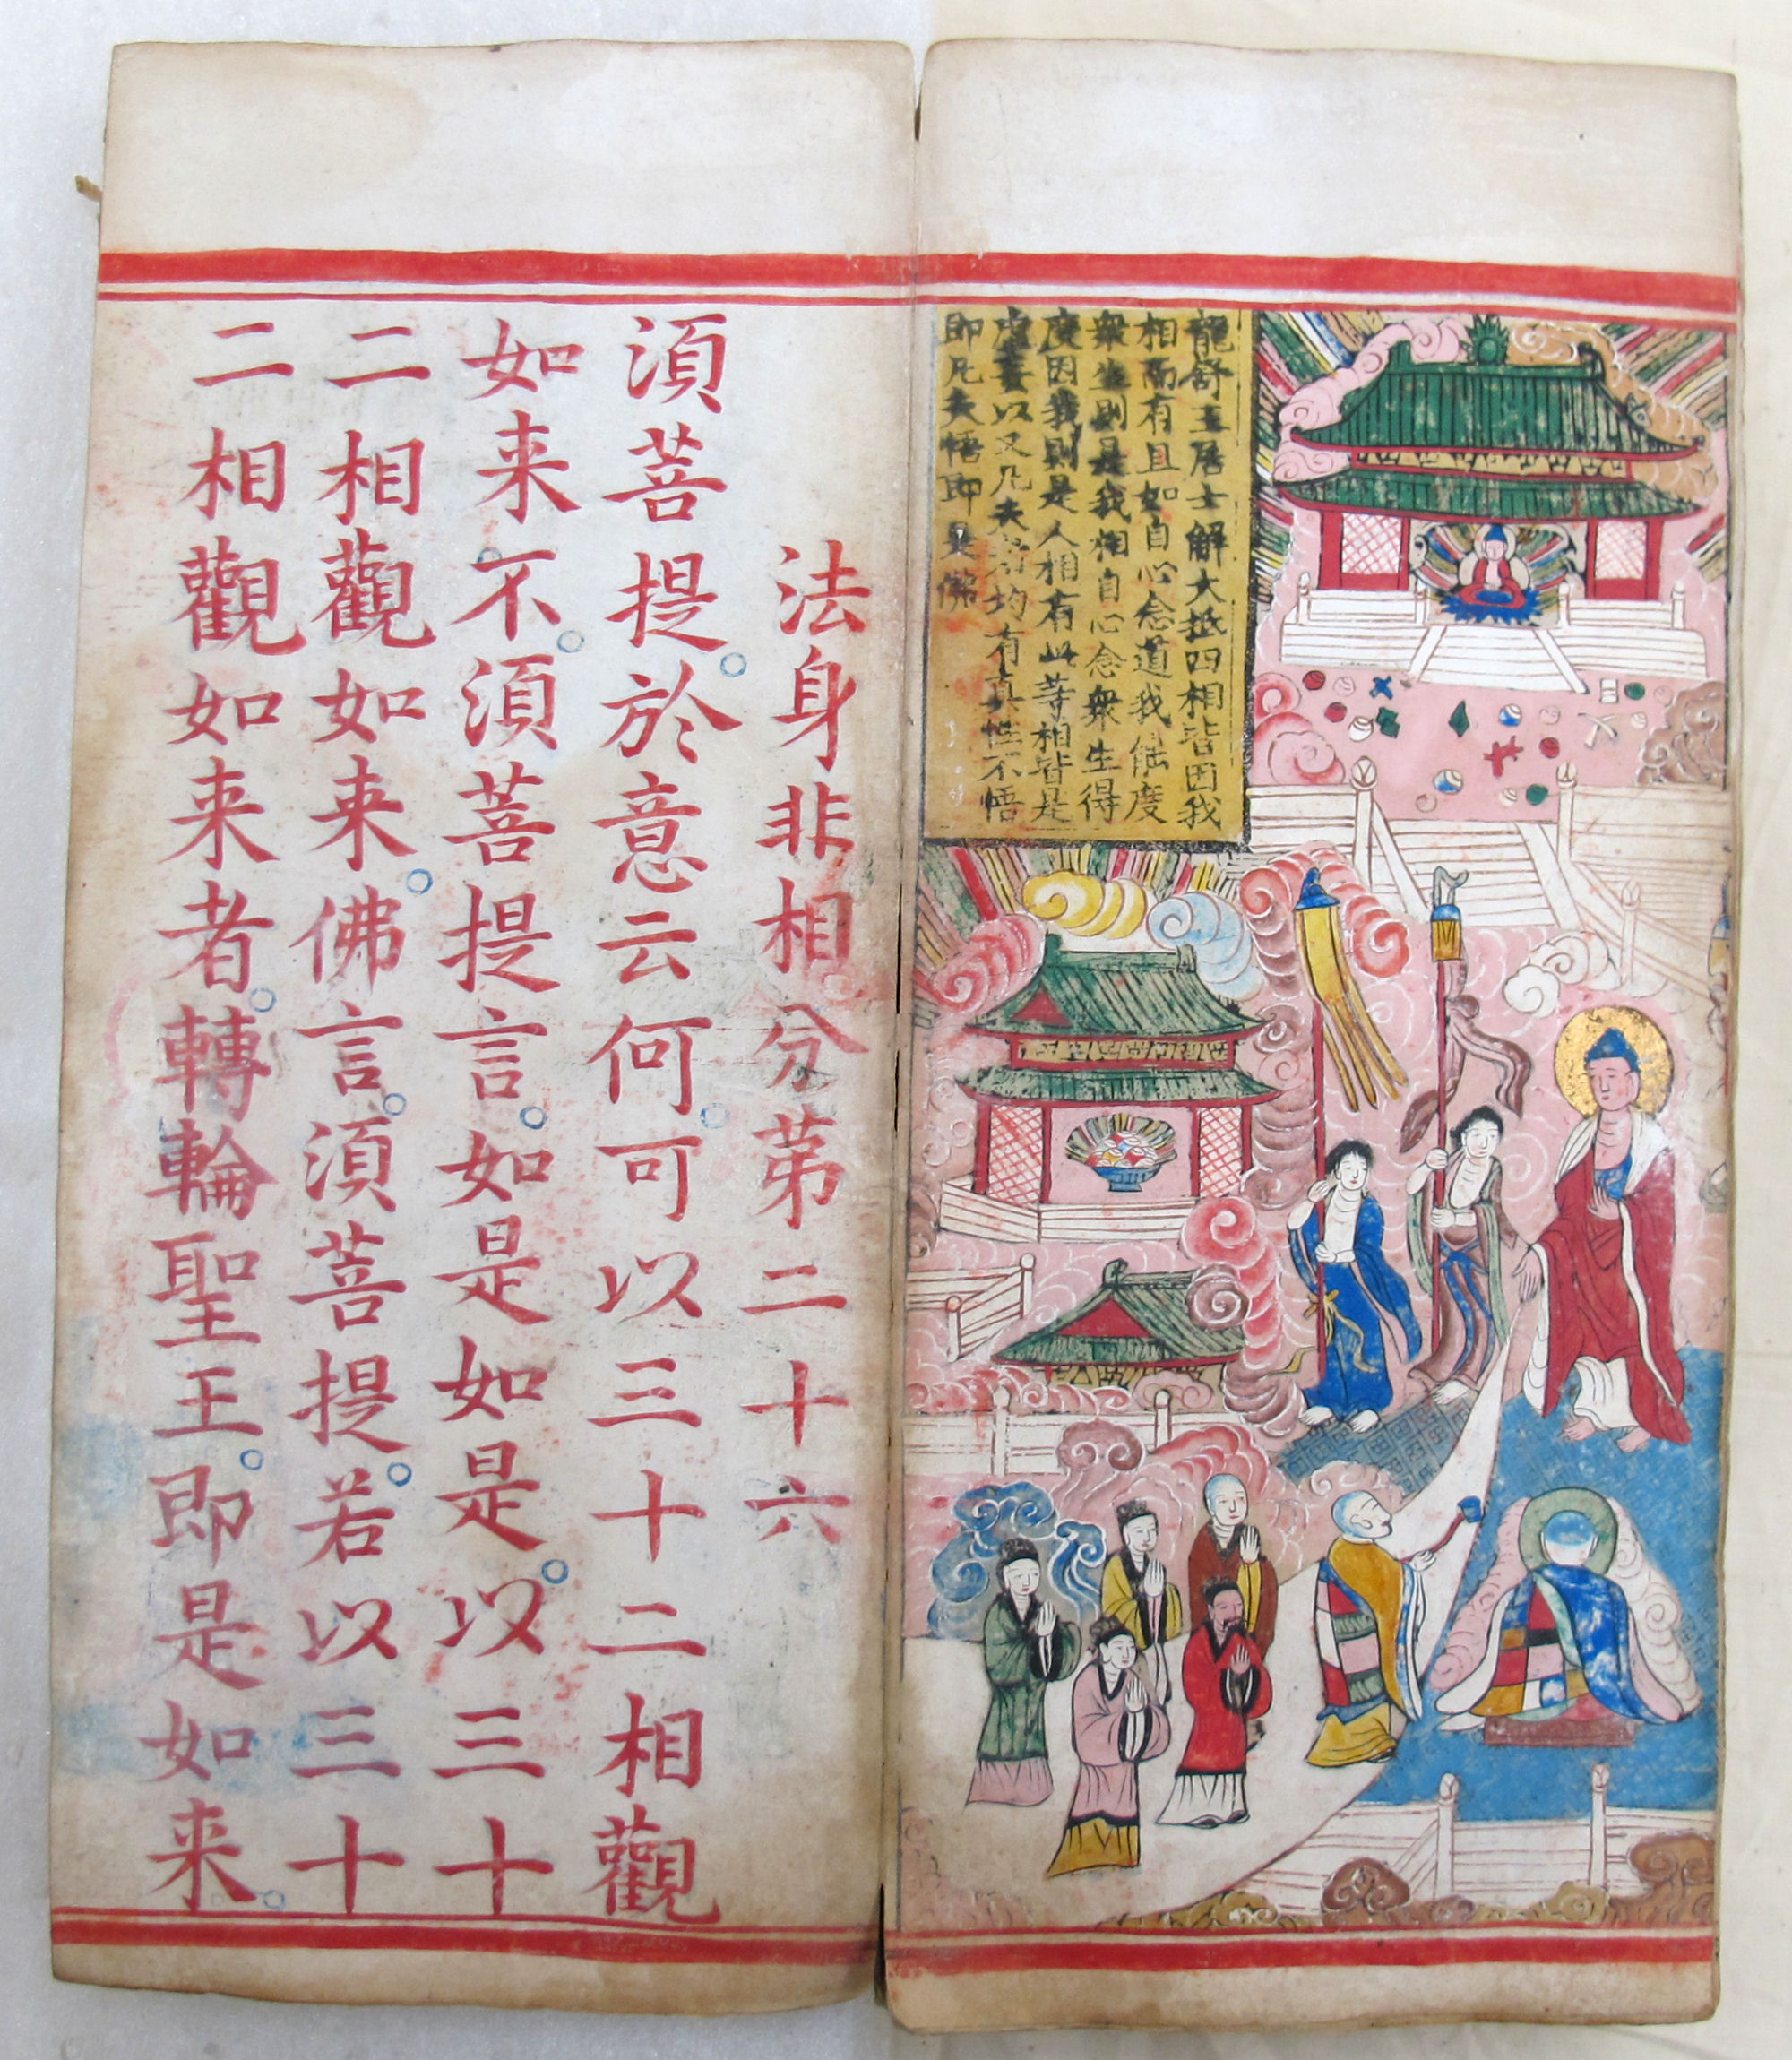 龍舒王居士解大抵四相皆因我
相而有且如自心念道我能度
衆生則是我相自心念衆生得
度因我則是人相有此等相皆是
虛妄以又凡夫均有真性不悟
即凡夫悟即是佛
法身非相分苐二十六
須菩提。於意云何。可以三十二相觀
如来不。須菩提言。如是如是。以三十
二相觀如来。佛言。須菩提。若以三十
二相觀如来者。轉輪聖王。即是如来。